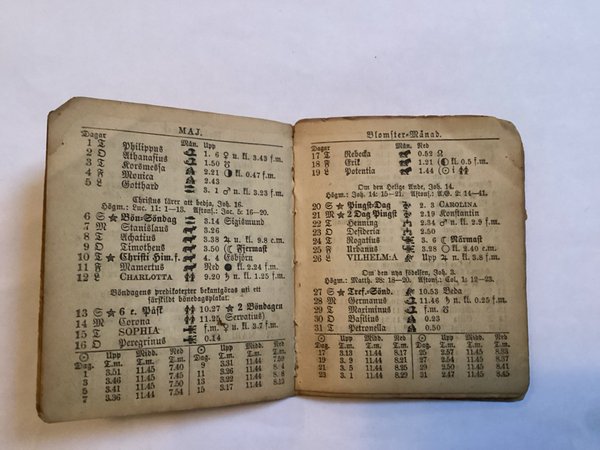 MAJ.
Dagar Mån. Upp
1 T Philippus
2 O Athanasius 1. 6 ♀ n. kl. 3.43 f.m.
3 T Korsmessa 1.50
4 F Monica 2.21 n. kl. 0.47 f.m.
5 L Gotthard 3. 1 ♂ n. kl. 3.23 f.m.
Christus lärer att bedja, Joh. 16.
Högm.: Luc. 11: 1—13. Aftons.: Jac. 5: 16—20.
6 S ★ Bön-Söndag 3.14 Sigismund
7 M Stanislaus 3.26
8 T Achatius 3.38 ♃ n. kl. 9.8 e.m.
9 O Timotheus 3.50 ☾ Fjermast
10 T ★ Christi Him.f. 4. 4 Esbjörn
11 F Mamertus Ned ● kl. 2.24 f.m.
12 L CHARLOTTA 9.20 ♄ n. kl. 1.25 f.m.
Böndagens predikotexter bekantgöras uti ett
särskildt bönedagsplakat.
13 S ★ 6 e. Påsk 10.27 ★ 2 Böndagen
14 M Corona 11.25 Servatius)
15 T SOPHIA f.m. ♀ n. kl. 3.7 f.m.
16 O Peregrinus 0.14
☉ Upp Midd. Ned ☉ Upp Midd. Ned
Dag. T.m. T.m. T.m. Dag. T.m. T.m. T.m.
1 3.51 11.45 7.40 9 3.31 11.44 7.59
3 3.46 11.45 7.45 11 3.26 11.44 8. 4
5 3.41 11.45 7.50 13 3.22 11.44 8. 8
7 3.36 11.44 7.54 15 3.17 11.44 8.13
Blomster-Månad.
Dagar Mån. Ned
17 T Rebecka 0.52 ☊
18 F Erik 1.21 kl. 0.5 f.m.
19 L Potentia 1.44 (☉ i ♊
Om den Helige Ande, Joh. 14.
Högm.: Joh. 14: 15—21. Aftons.: A.G. 2: 14—41.
20 S ★ Pingst-Dag 2. 3 CAROLINA
21 M ★ 2 Dag Pingst 2.19 Konstantin
22 T Henning 2.34 ♂ n. kl. 2.9 f.m.
23 O Desideria 2.50
24 T Rogatius 3. 6 ☾ Närmast
25 F Urbanus 3.28 ○ kl. 2.40 e.m.
26 L VILHELM:A Upp ♃ n. kl. 3.8 f.m.
Om den nya födelsen, Joh. 3.
Högm.: Matth. 28: 18—20. Aftons.: Col. 1: 12—23.
27 S ★ Tref.-Sönd. 10.53 Beda
28 M Germanus 11.46 ♄ n. kl. 0.25 f.m.
29 T Maximinus f.m.
30 O Basilius 0.23
31 T Petronella 0.50
☉ Upp Midd. Ned ☉ Upp Midd. Ned
Dag. T.m. T.m. T.m. Dag. T.m. T.m. T.m.
17 3.13 11.44 8.17 25 2.57 11.45 8.33
19 3. 9 11.44 8.21 27 2.54 11.45 8.37
21 3. 5 11.44 8.25 29 2.50 11.45 8.41
23 3. 1 11.44 8.29 31 2.47 11.45 8.45